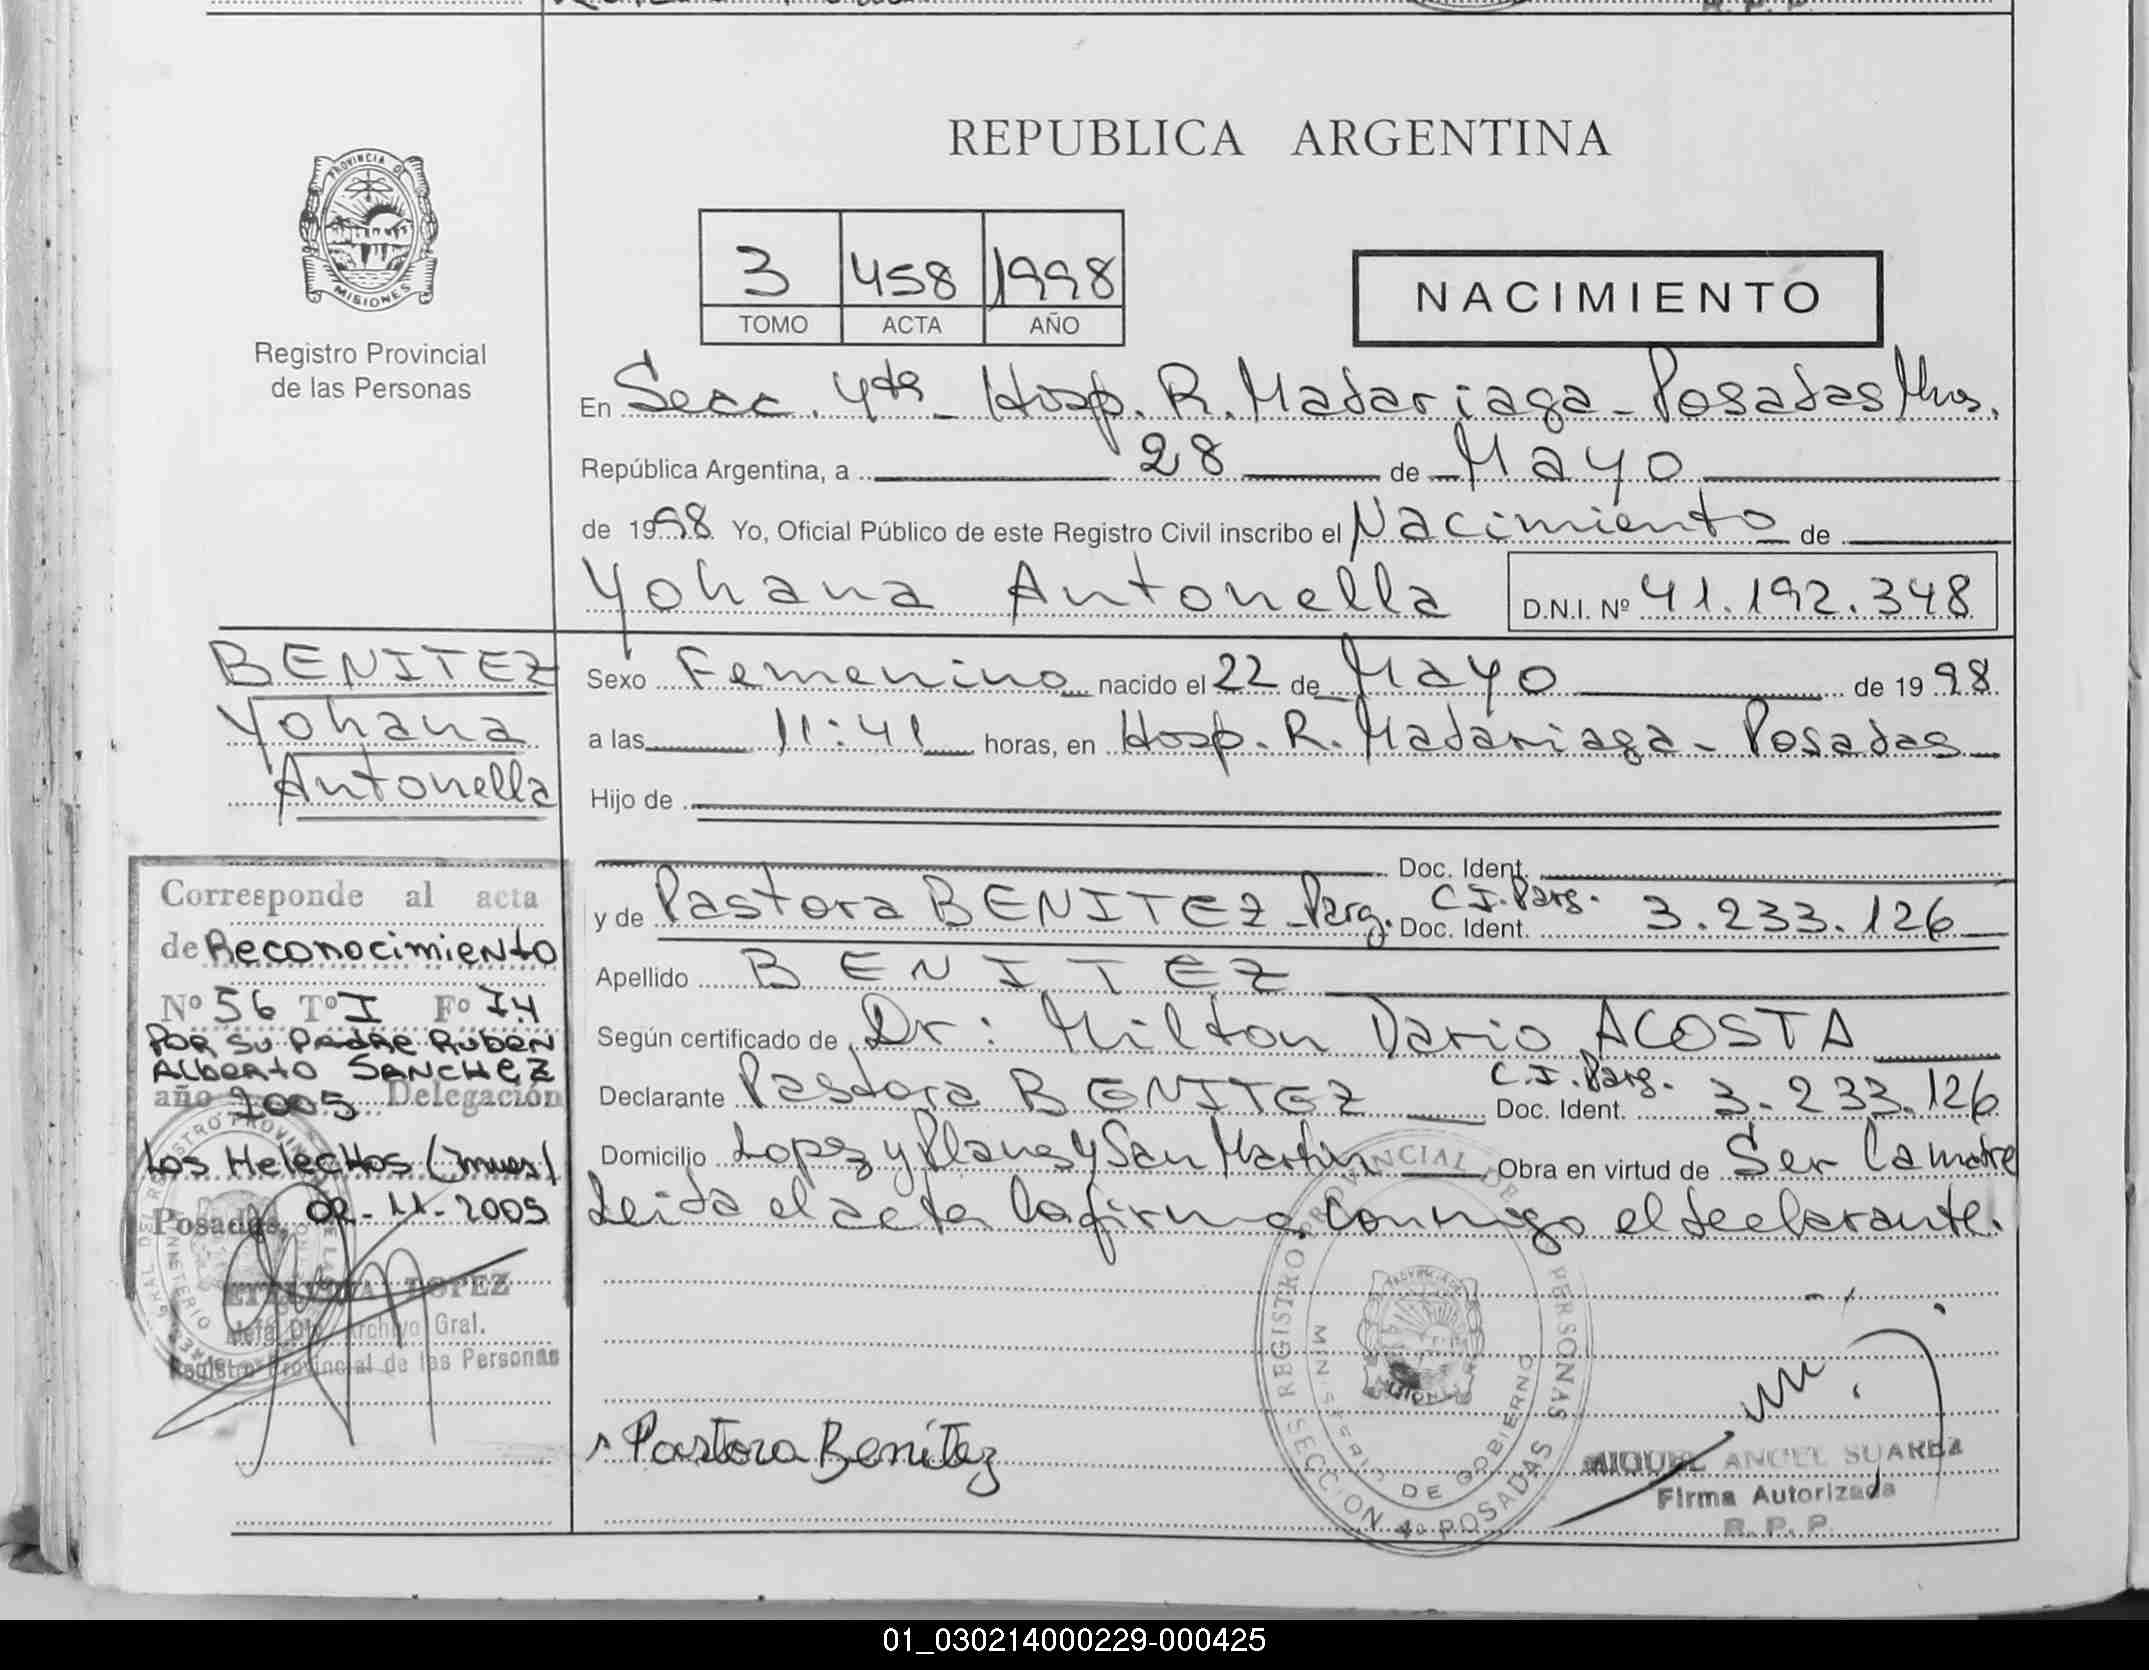 REPUBLICA ARGENTINA
PROVINCIA DE
MISIONES
Registro Provincial
de las Personas
3 458 1998
TOMO ACTA AÑO
NACIMIENTO
En Secc. 4ta - Hosp. R. Madariaga - Posadas Mnes.
República Argentina, a 28 de Mayo
de 1998 Yo, Oficial Público de este Registro Civil inscribo el Nacimiento de
Yohana Antonella D.N.I. Nº 41.192.348
BENITEZ
Yohana
Antonella
Sexo Femenino nacido el 22 de Mayo de 1998
a las 11:41 horas, en Hosp. R. Madariaga - Posadas
Hijo de
Doc. Ident.
y de Pastora BENITEZ - Parg. Doc. Ident. C.I. Parg. 3.233.126
Apellido BENITEZ
Según certificado de Dr: Milton Dario ACOSTA
Declarante Pastora BENITEZ Doc. Ident. C.I. Parg. 3.233.126
Domicilio Lopez y Planes y San Martin Obra en virtud de Ser la madre
Leida el acta la firma conmigo el declarante.
Corresponde al acta
de Reconocimiento
Nº 56 Tº I Fº 74
POR SU PADRE RUBEN
ALBERTO SANCHEZ
año 2005 Delegación
Los Helechos (
Posadas, 02-11-2005
LOPEZ
Jefa Dto. Archivo Gral.
Registro Provincial de las Personas
Pastora Benítez
REGISTRO PROVINCIAL DE PERSONAS
MINISTERIO DE GOBIERNO
SECCION 4º POSADAS
MIGUEL ANGEL SUAREZ
Firma Autorizada
R. P. P.
01_030214000229-000425